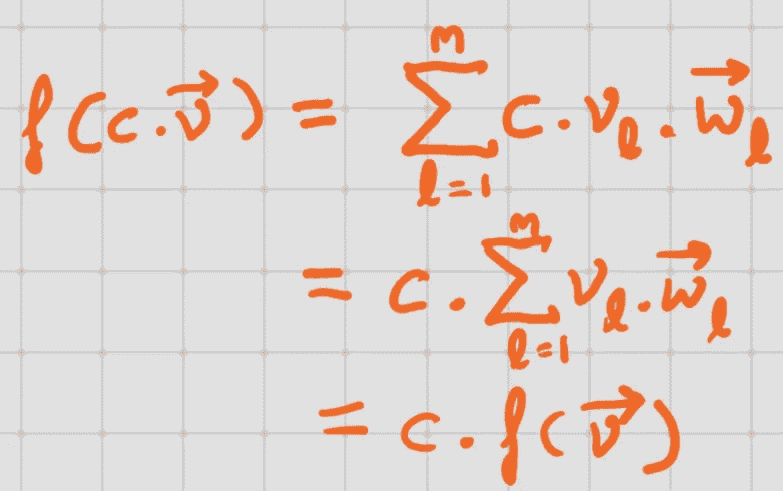 f(c.\vec{v}) = \sum_{l=1}^{m} c.v_l.\vec{w}_l
= c.\sum_{l=1}^{m} v_l.\vec{w}_l
= c.f(\vec{v})